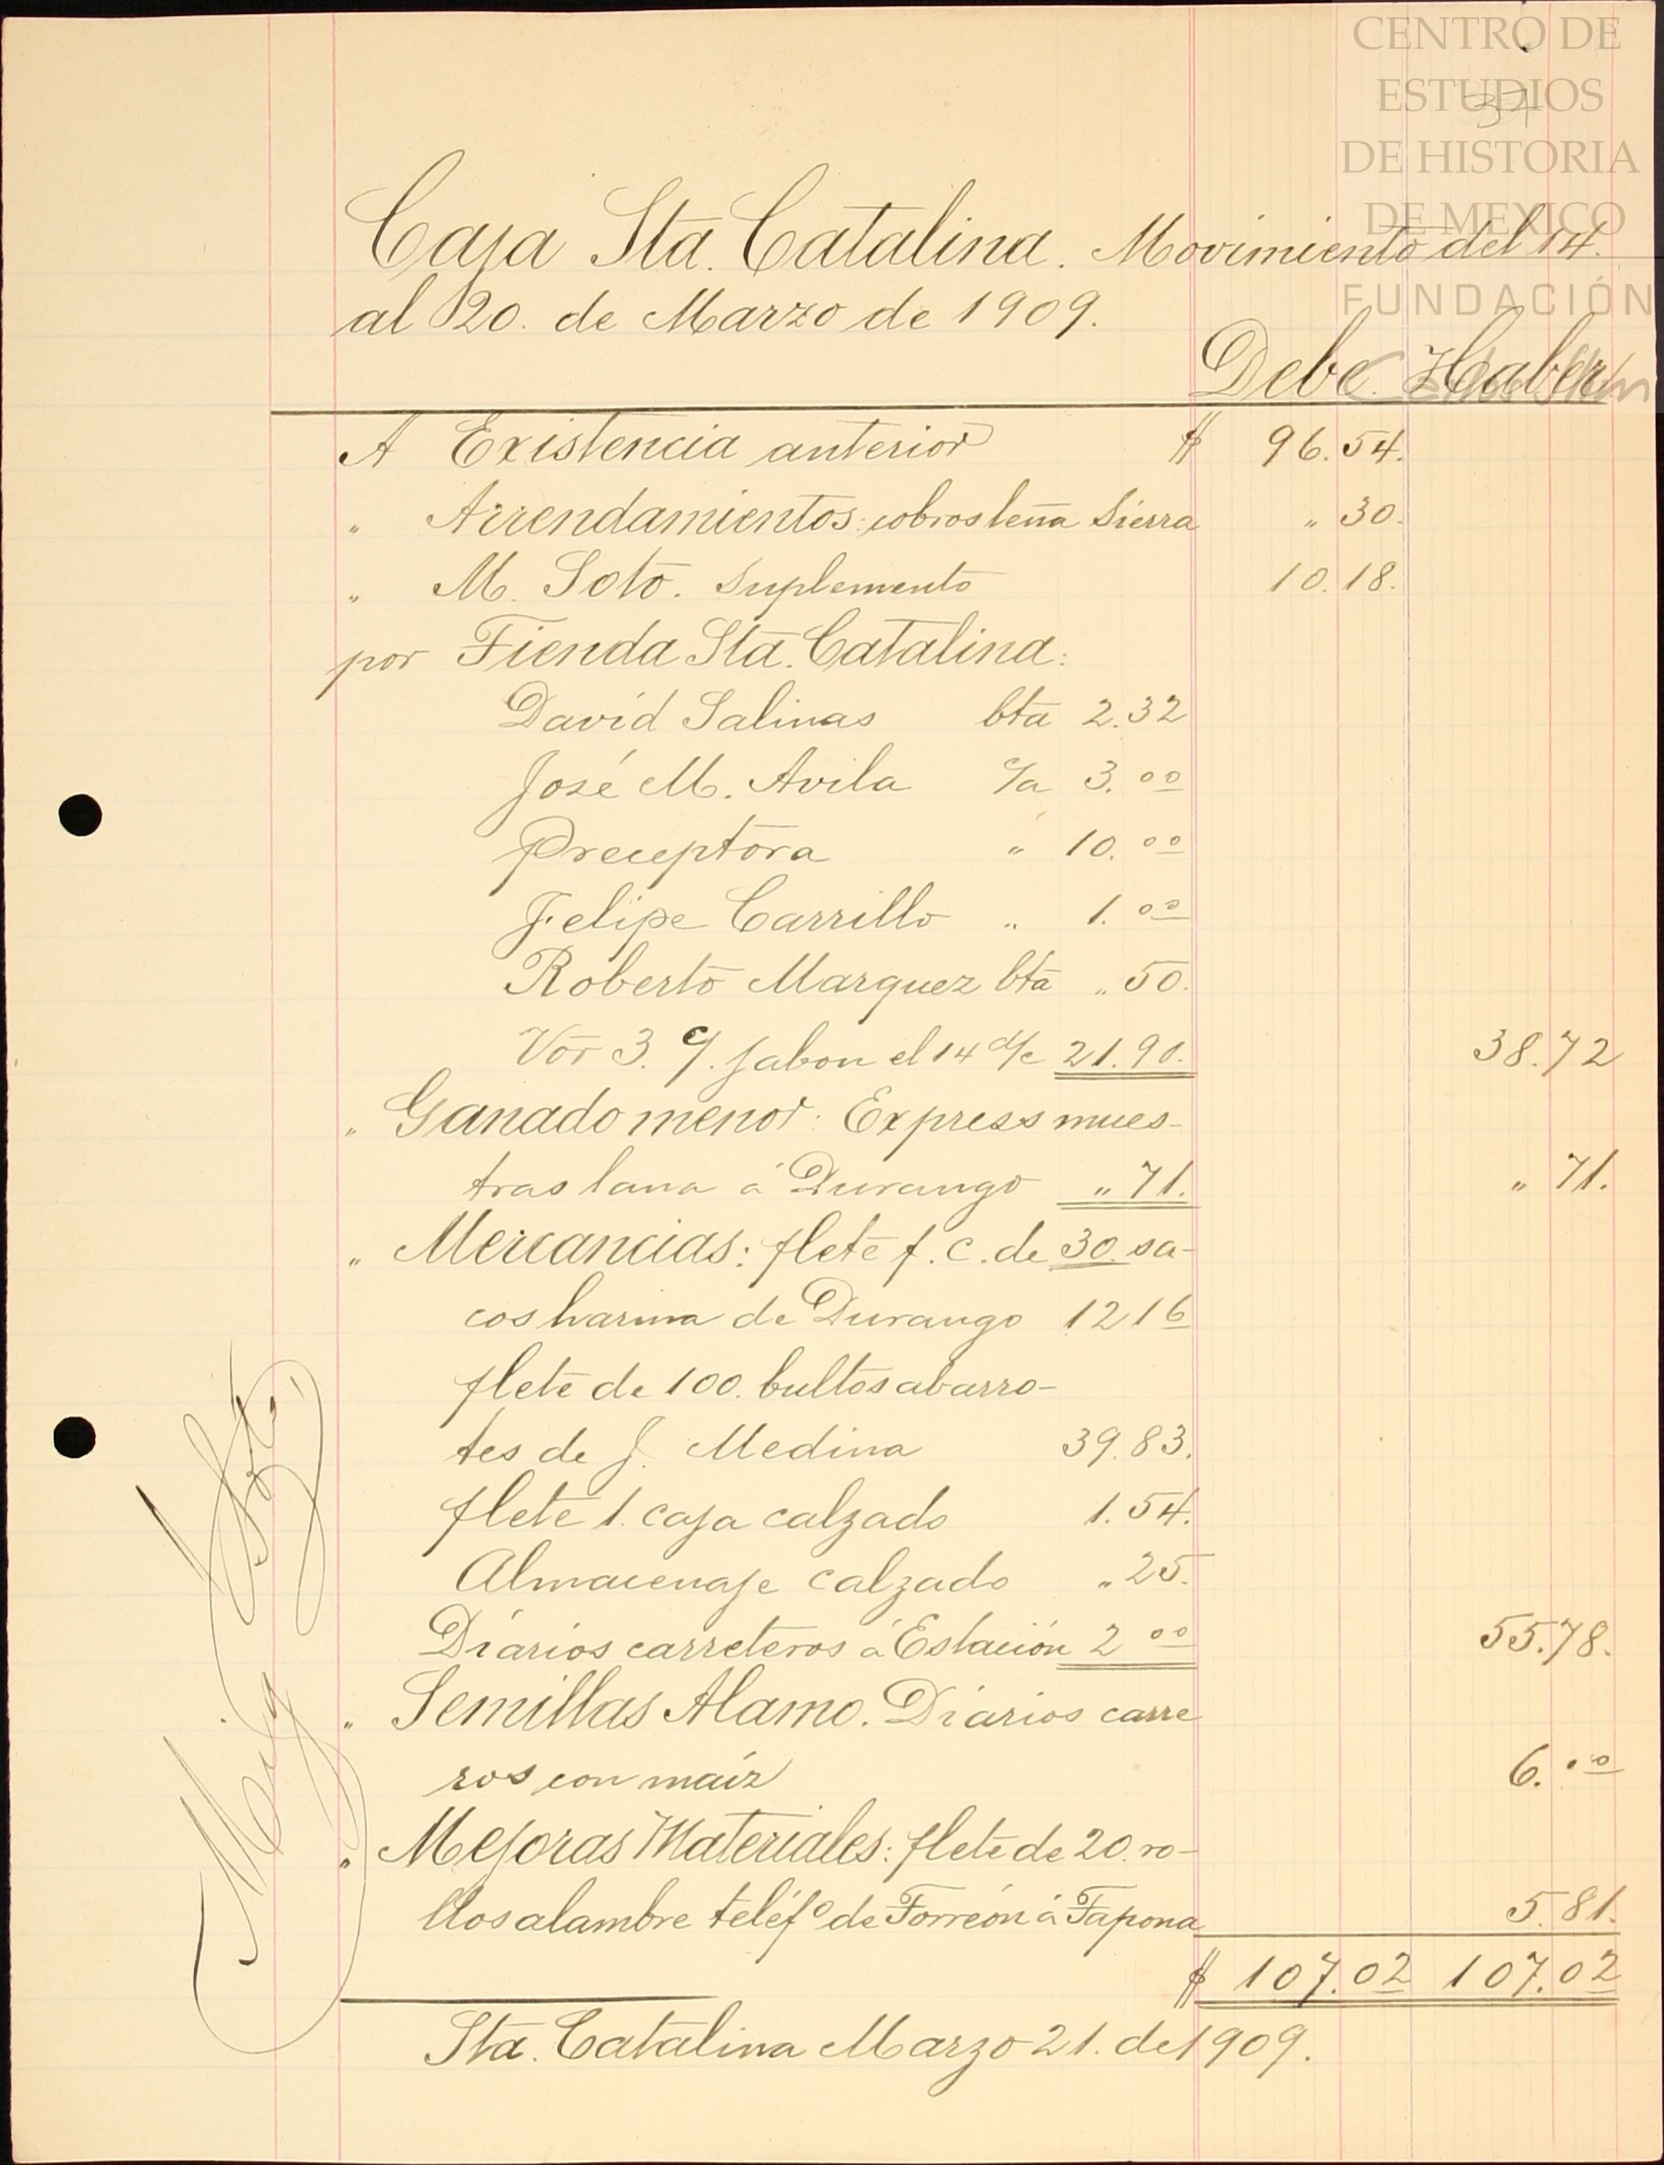 CENTRO DE
ESTUDIOS
37
DE HISTORIA
DE MEXICO
FUNDACIÓN
Caja Sta. Catalina. Movimiento del 14.
al 20. de Marzo de 1909.
Debe. Haber
A Existencia anterior $ 96.54.
" Arrendamientos: cobros leña Sierra " 30.
" M. Soto. Suplemento 10.18.
por Tienda Sta. Catalina:
David Salinas bta 2.32
José M. Avila c/a 3.00
Preceptora " 10.00
Felipe Carrillo " 1.00
Roberto Marquez bta " 50.
Vor 3. c/. jabon el 14 d/c 21.90. 38.72
" Ganado menor: Express mues-
tras lana á Durango " 71. " 71.
" Mercancias: flete f. c. de 30. sa-
cos harina de Durango 12 16
flete de 100. bultos abarro-
tes de J. Medina 39.83.
flete 1. caja calzado 1.54.
Almacenaje calzado " 25.
Diários carreteros á Estación 2 00 55.78.
" Semillas Alamo. Diários carre
ros con maíz 6.00
" Mejoras Materiales: flete de 20. ro-
llos alambre teléfo de Torreón á Tapona 5.81.
$ 107.02 107.02
Sta. Catalina Marzo 21. de 1909.
Mig Soto